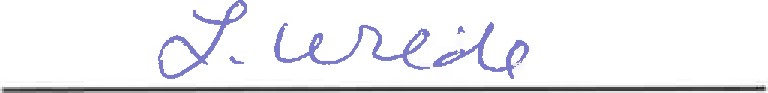 L. Wride